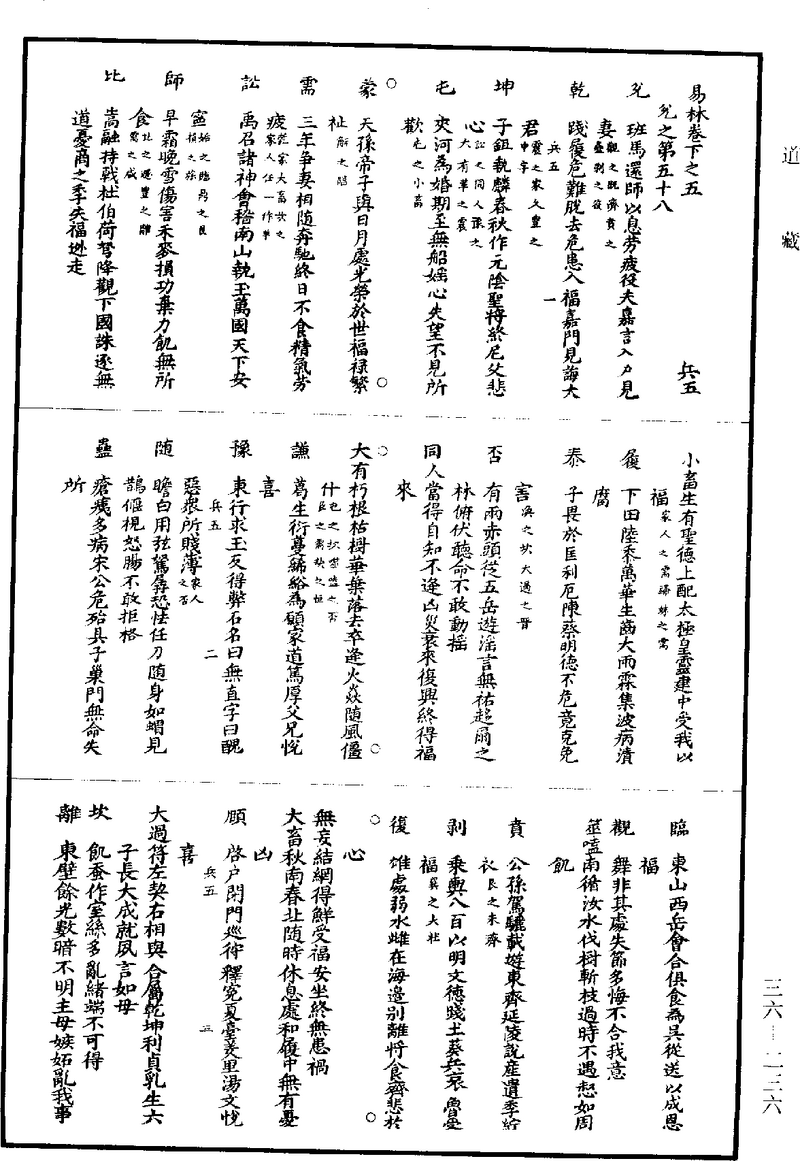 道藏
三六—二三六
易林卷下之五
兵五
兌之第五十八
兌 班馬還師以息勞疲役夫嘉言入戶見
妻觀之旣濟賁之
乾 踐履危難脫去危患入福嘉門見誨大
兵五 一
君
坤 子鉏執麟春秋作元陰聖將終尼父悲
心訟之同人
大有革之震
屯 夾河為婚期至無船媱心失望不見所
歡屯之小畜
蒙 天孫帝子與日月處光榮於世福祿繁
祉解之臨
需 三年爭妻相隨奔馳終日不食精氣勞
疲
訟 禹召諸神會稽南山執玉萬國天下安
寧
師 早霜晚雪傷害禾麥損功棄力飢無所
食
比 嵩融持戟杜伯荷弩降觀下國誅逐無
道憂商之季失福逃走
小畜生有聖德上配太極皇靈建中受我以
福
履 下田陸黍萬華生齒大雨霖集波病潰
腐
泰 子畏於匡利厄陳蔡明德不危竟克免
害渙之坎大過之晉
否 有雨赤頭從五岳遊謠言無祐趍爾之
林俯伏聽命不敢動搖
同人當得自知不逢凶災衰來復興終得福
來
大有朽根枯樹華葉落去卒逢火焱隨風僵
什
謙 葛生衍蔓絺綌為願家道篤厚父兄悅
喜
豫 東行求玉反得弊石名曰無直字曰醜
兵五 二
惡眾所賤薄家人
之否
隨 瞻白用弦駑孱恐怯任刀隨身如蝟見
鵲偃視怒腸不敢拒格
蠱 瘡痍多病宋公危殆具子巢門無命失
所
臨 東山西岳會合俱食為具從送以成恩
福
觀 舞非其處失節多悔不合我意
筮嗑南循汝水伐樹斬枝過時不遇惄如周
飢
賁 公孫駕驪載遊東齊延陵說產遺季紵
衣艮之未濟
剝 乘輿八百以明文德踐土葵丘哀魯受
福
復 雄處弱水雌在海邊別離將食齊悲於
心
無妄結網得鮮受福安坐終無患禍
大畜秋南春北隨時休息處和履中無有憂
凶
頤 啓戶閉門巡狩釋冤夏臺羑里湯文悅
兵五 三
喜
大過符左契右相與合屬乾坤利貞乳生六
子長大成就夙言如母
坎 飢蚕作室絲多亂緒端不可得
離 東壁餘光數暗不明主母嫉妬亂我事